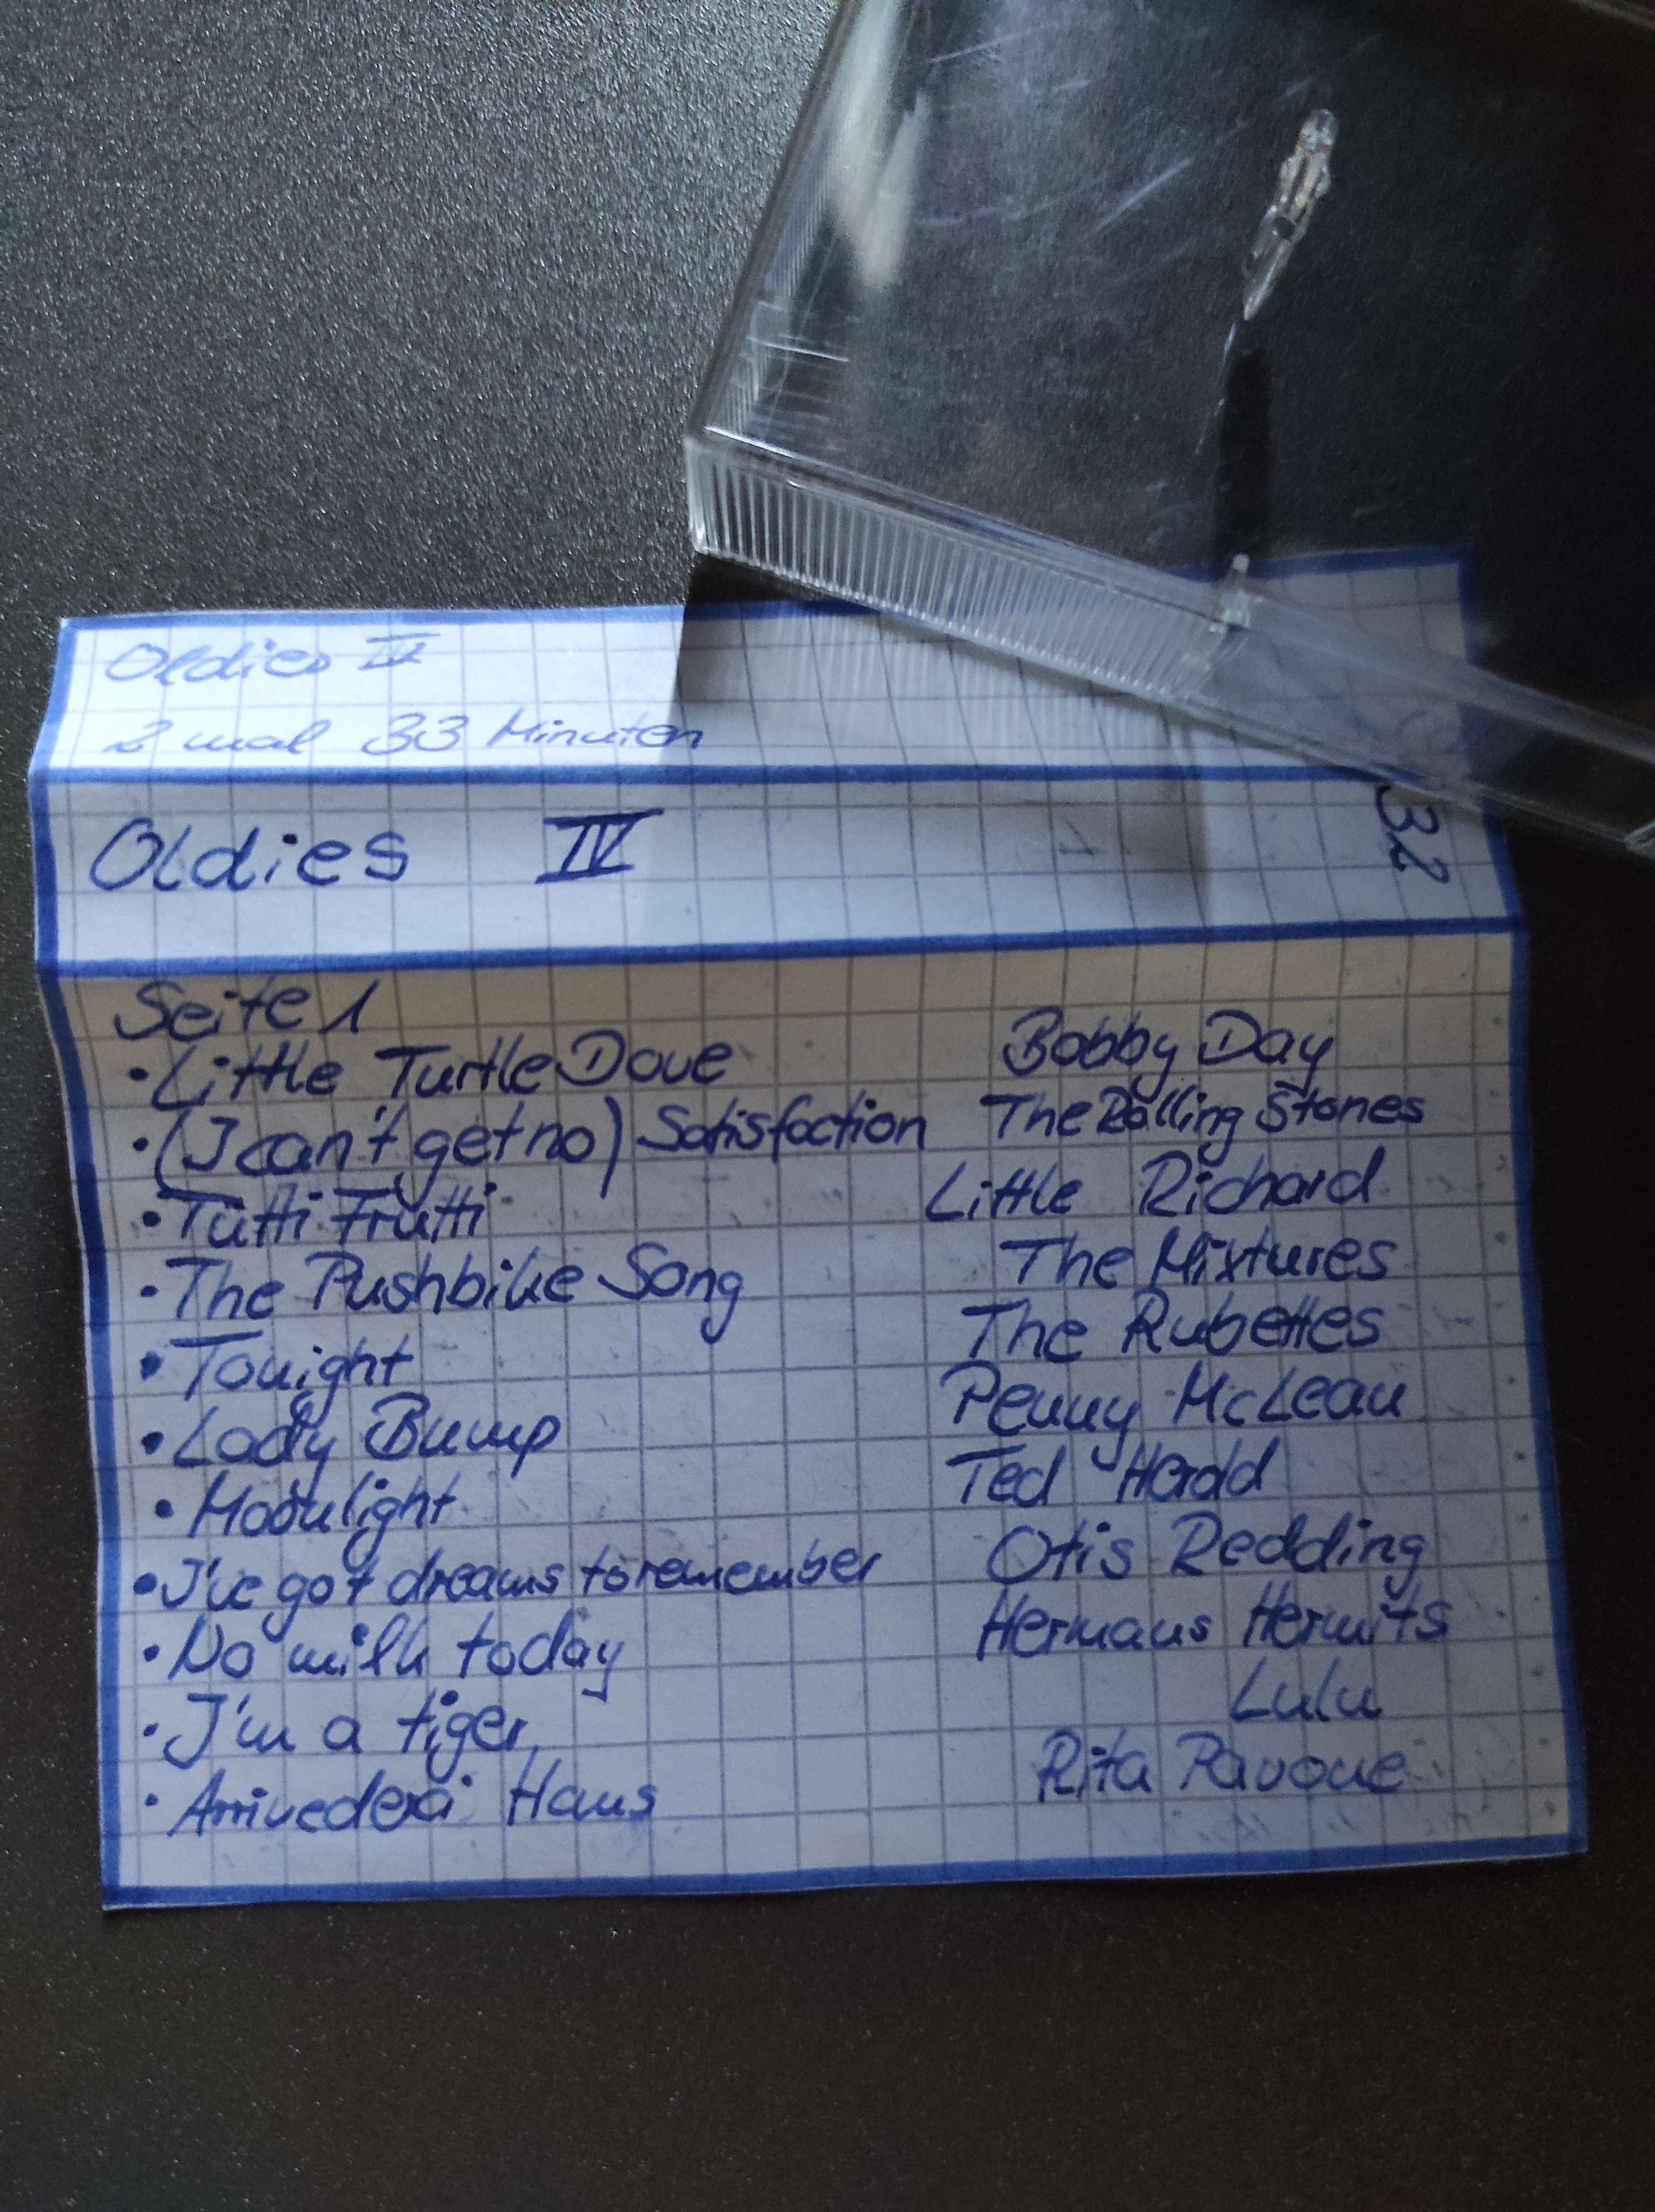 Oldies IV
2 mal 33 Minuten
Oldies IV
32
Seite 1
• Little Turtle Dove Bobby Day
• (I can't get no) Satisfaction The Rolling Stones
• Tutti Frutti Little Richard
• The Pushbike Song The Mixtures
• Tonight The Rubettes
• Lady Bump Penny McLean
• Moonlight Ted Herold
• I've got dreams to remember Otis Redding
• No milk today Hermans Hermits
• I'm a tiger Lulu
• Arrivederci Hans Rita Pavone